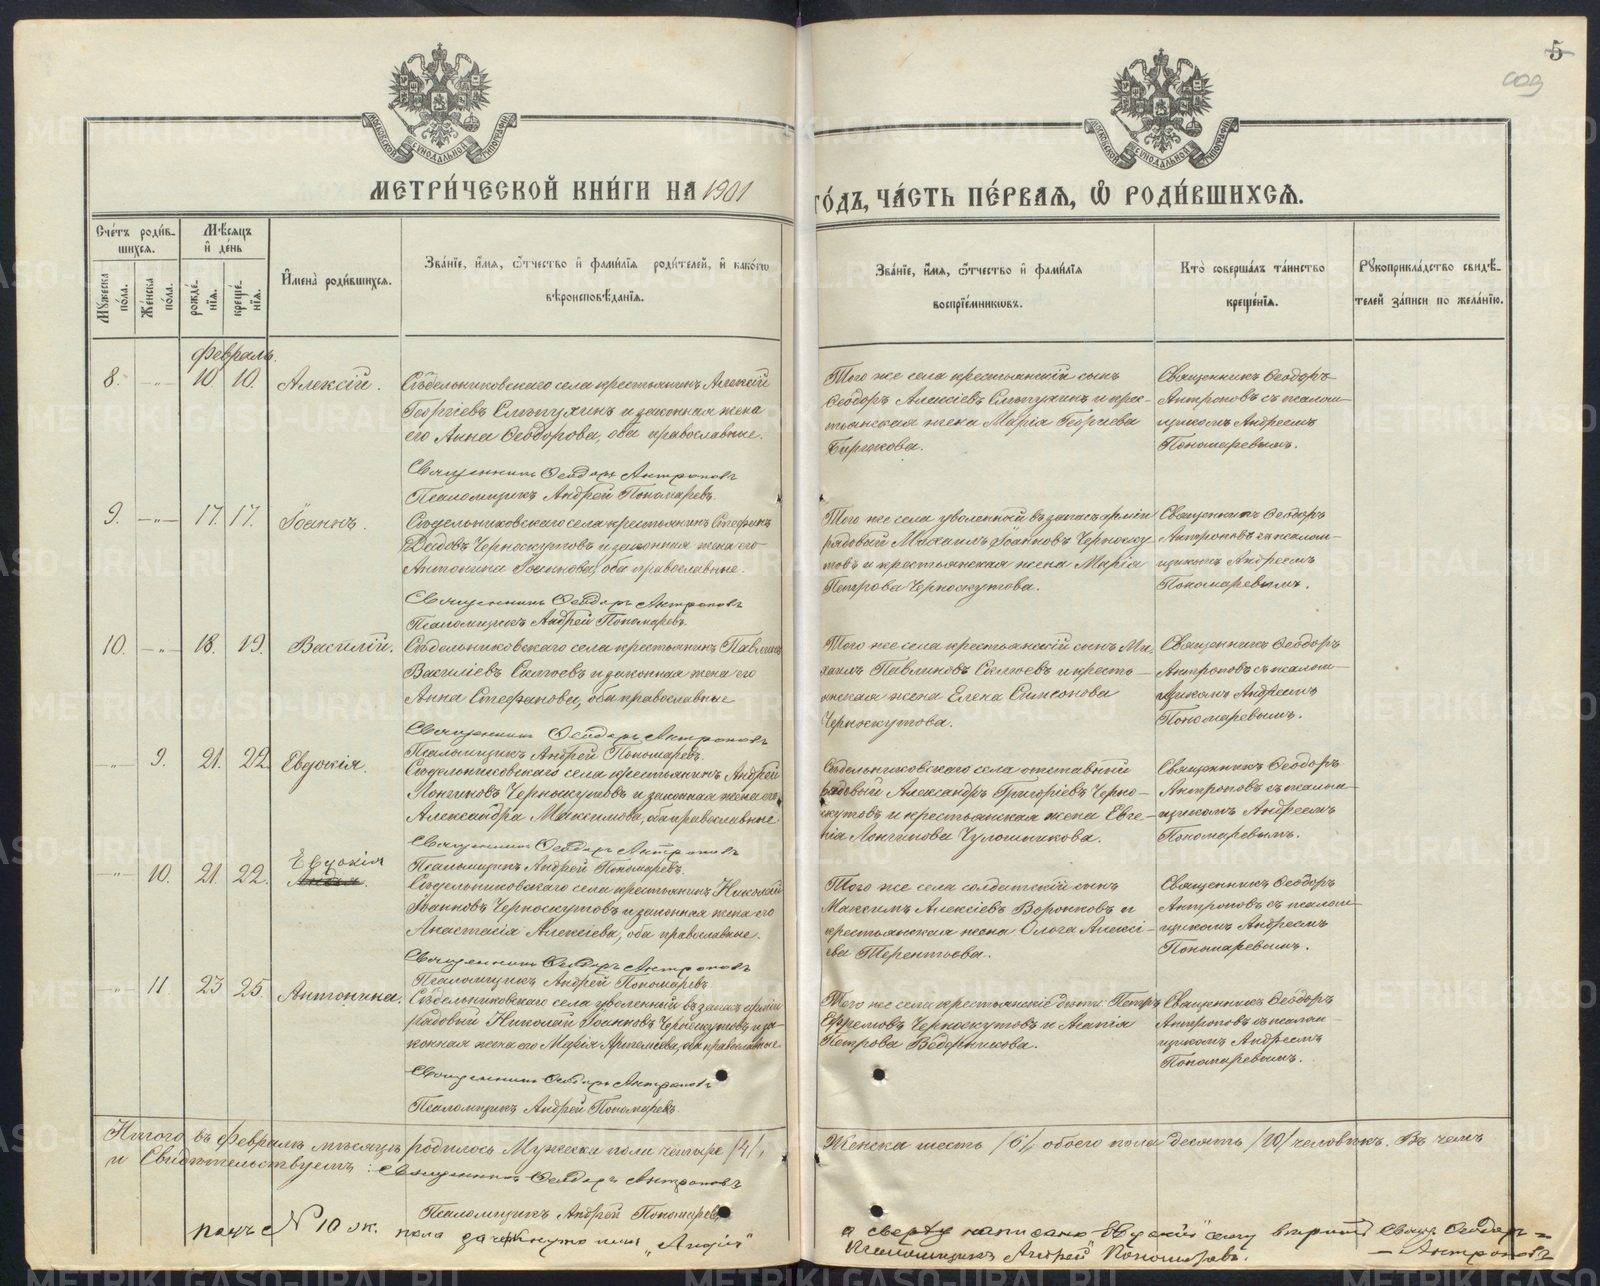 5
МОСКОВСКОЙ СѴНОДАЛЬНОЙ ТИПОГРАФІИ
МОСКОВСКОЙ СѴНОДАЛЬНОЙ ТИПОГРАФІИ
МЕТРИ́ЧЕСКОЙ КНИ́ГИ НА 1901
ГО́ДЪ, ЧА́СТЬ ПЕ́РВАЯ, Ѡ РОДИ́ВШИХСЯ.
Сче́тъ роди́в-
шихся.
Мѣ́сяцъ
и҆ де́нь
Мꙋ́жеска по́ла.
Же́нска по́ла.
рожде́нїя.
креще́нїя.
И҆мена̀ роди́вшихся.
Зва́нїе, и҆́мя, ѻ҆́тчество и҆ фами́лїя роди́телей, и҆ како́гѡ
вѣроисповѣ́данїя.
Зва́нїе, и҆́мя, ѻ҆́тчество и҆ фами́лїя
воспрїе́мникѡвъ.
Кто̀ соверша́лъ та́инство
креще́нїя.
Рꙋкоприкла́дство свидѣ́-
телей за́писи по жела́нїю.
Февраль.
8. — 10 10. Алексій.
Сѣдельниковскаго села крестьянинъ Алексій
Георгіевъ Слѣпухинъ и законная жена
его Анна Ѳеодорова, оба православные.
Священникъ Ѳеодоръ Антроповъ
Псаломщикъ Андрей Пономаревъ.
Того же села крестьянскій сынъ
Ѳеодоръ Алексіевъ Слѣпухинъ и крес-
тьянская жена Марія Георгіева
Бирюкова.
Священникъ Ѳеодоръ
Антроповъ съ псалом-
щикомъ Андреемъ
Пономаревымъ.
9. — 17. 17. Іоаннъ.
Сѣдельниковскаго села крестьянинъ Стефанъ
Черноскутовъ и законная жена его
Антонина Іоаннова, оба православные.
Священникъ Ѳеодоръ Антроповъ
Псаломщикъ Андрей Пономаревъ
Того же села уволенный въ запасъ арміи
рядовый Михаилъ Іоанновъ Черноску-
товъ и крестьянская жена Марія
Петрова Черноскутова.
Священникъ Ѳеодоръ
Антроповъ съ псалом-
щикомъ Андреемъ
Пономаревымъ.
10. — 18. 19. Василій.
Сѣдельниковскаго села крестьянинъ Павлинъ
Василіевъ и законная жена его
Анна Стефанова, оба православные
Священникъ Ѳеодоръ Антроповъ
Псаломщикъ Андрей Пономаревъ.
Того же села крестьянскій сынъ Ми-
хаилъ Павлиновъ и кресть-
янская жена Елена Симеонова
Черноскутова.
Священникъ Ѳеодоръ
Антроповъ съ псалом-
щикомъ Андреемъ
Пономаревымъ.
— 9. 21. 22. Евдокія.
Сѣдельниковскаго села крестьянинъ Андрей
Лонгиновъ Черноскутовъ и законная жена его
Александра Максимова, оба православные
Священникъ Ѳеодоръ Антроповъ
Псаломщикъ Андрей Пономаревъ.
Сѣдельниковскаго села отставный
рядовый Александръ Григоріевъ Черно-
скутовъ и крестьянская жена Евге-
нія Лонгинова Чулошникова.
Священникъ Ѳеодоръ
Антроповъ съ псалом-
щикомъ Андреемъ
Пономаревымъ.
Евдокія
— 10. 21. 22.
Сѣдельниковскаго села крестьянинъ Николай
Іоанновъ Черноскутовъ и законная жена его
Анастасія Алексіева, оба православные.
Священникъ Ѳеодоръ Антроповъ
Псаломщикъ Андрей Пономаревъ.
Того же села солдатскій сынъ
Максимъ Алексіевъ Воронковъ и
крестьянская жена Ольга Алексі-
ева Терентьева.
Священникъ Ѳеодоръ
Антроповъ съ псалом-
щикомъ Андреемъ
Пономаревымъ.
— 11. 23 25. Антонина.
Сѣдельниковскаго села уволенный въ запасъ арміи
рядовый Николай Іоанновъ Черноскутовъ и за-
конная жена его Марія Артеміева, оба православные
Священникъ Ѳеодоръ Антроповъ
Псаломщикъ Андрей Пономаревъ.
Того же села крестьянскіе дѣти: Петръ
Ефремовъ Черноскутовъ и Агапія
Петрова Ведерникова.
Священникъ Ѳеодоръ
Антроповъ съ псалом-
щикомъ Андреемъ
Пономаревымъ.
Итого въ Февралѣ мѣсяцѣ родилось Мужеска пола четыре /4/,
Женска шесть /6/, обоего пола десять /10/ человѣкъ. Въ чемъ
и Свидѣтельствуемъ: Священникъ Ѳеодоръ Антроповъ
Псаломщикъ Андрей Пономаревъ
подъ № 10 ж. пола зачеркнуто имя „Лидія"
а сверху написано „Евдокія" сему вѣрить Свящ. Ѳеодоръ
Антроповъ
Псаломщикъ Андрей Пономаревъ.
METRIKI.GASO-URAL.RU